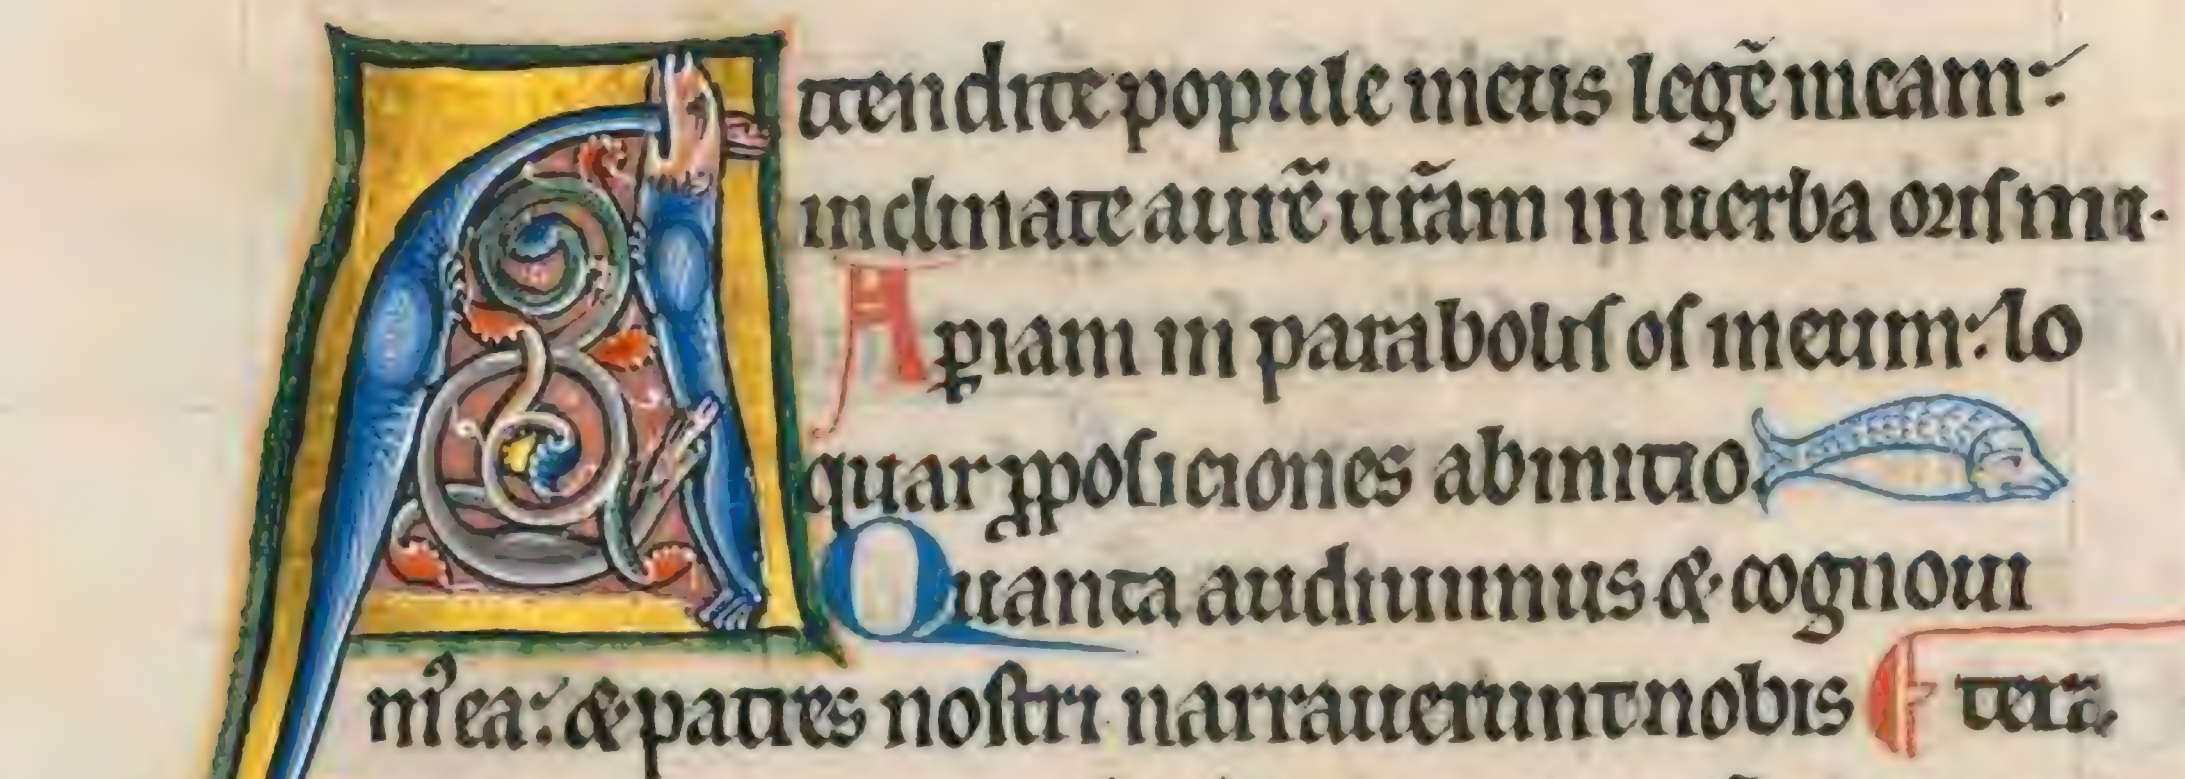 Attendite popule meus legē meam:
inclinate aurē ur̄am in uerba oris mei.
Aꝑiam in parabolis os meum: lo
quar ꝓposiciones ab initio.
Quanta audiuimus & cognoui
mꝰ ea: & patres nostri narrauerunt nobis